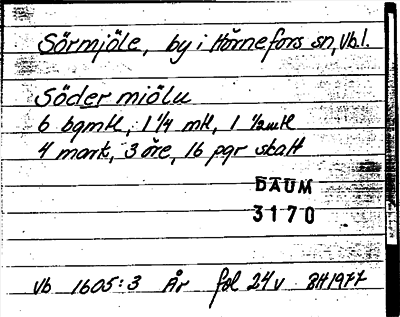 Sörmjöle, by i Hörnefors sn, Vb.l.
Söder miölu
6 bgmtl, 1 1/4 mtl, 1 1/2 mtl
4 mark, 3 öre, 16 pgr skatt
DAUM
3170
Vb 1605:3 År fol 24v BH1977